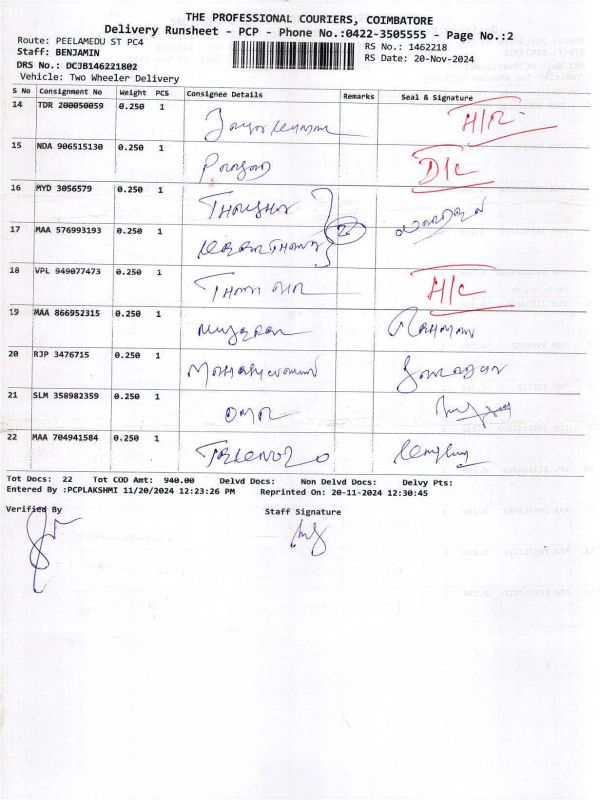 THE PROFESSIONAL COURIERS, COIMBATORE
Delivery Runsheet - PCP - Phone No.:0422-3505555 - Page No.:2
Route: PEELAMEDU ST PC4 RS No.: 1462218
Staff: BENJAMIN RS Date: 20-Nov-2024
DRS No.: DCJB146221802
Vehicle: Two Wheeler Delivery
S No Consignment No Weight PCS Consignee Details Remarks Seal & Signature
14 TDR 200050059 0.250 1
15 NDA 906515130 0.250 1 D/C
16 MYD 3056579 0.250 1
17 MAA 576993193 0.250 1 2
18 VPL 949077473 0.250 1 H/C
19 MAA 866952315 0.250 1 RAHMAN
20 RJP 3476715 0.250 1
21 SLM 358982359 0.250 1 OMR
22 MAA 704941584 0.250 1
Tot Docs: 22 Tot COD Amt: 940.00 Delvd Docs: Non Delvd Docs: Delvy Pts:
Entered By :PCPLAKSHMI 11/20/2024 12:23:26 PM Reprinted On: 20-11-2024 12:30:45
Verified By Staff Signature